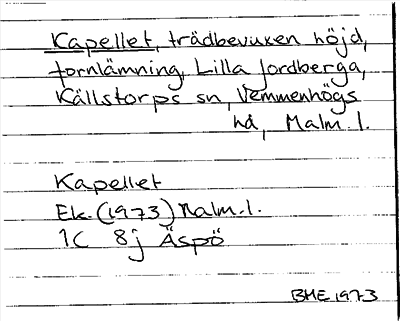 Kapellet, trädbevuxen höjd,
fornlämning, Lilla Jordberga,
Källstorps sn, Vemmenhögs
hd, Malm. l.
Kapellet
Ek. (1973) Malm. l.
1C 8j Äspö
BME 1973